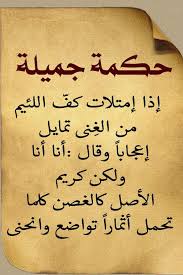 حكمة جميلة
إذا إمتلات كفّ اللئيم
من الغِنى تمايل
إعجاباً وقال :أنا أنا
ولكن كريم
الأصل كالغصن كلما
تحمل أثماراً تواضع وانحنى